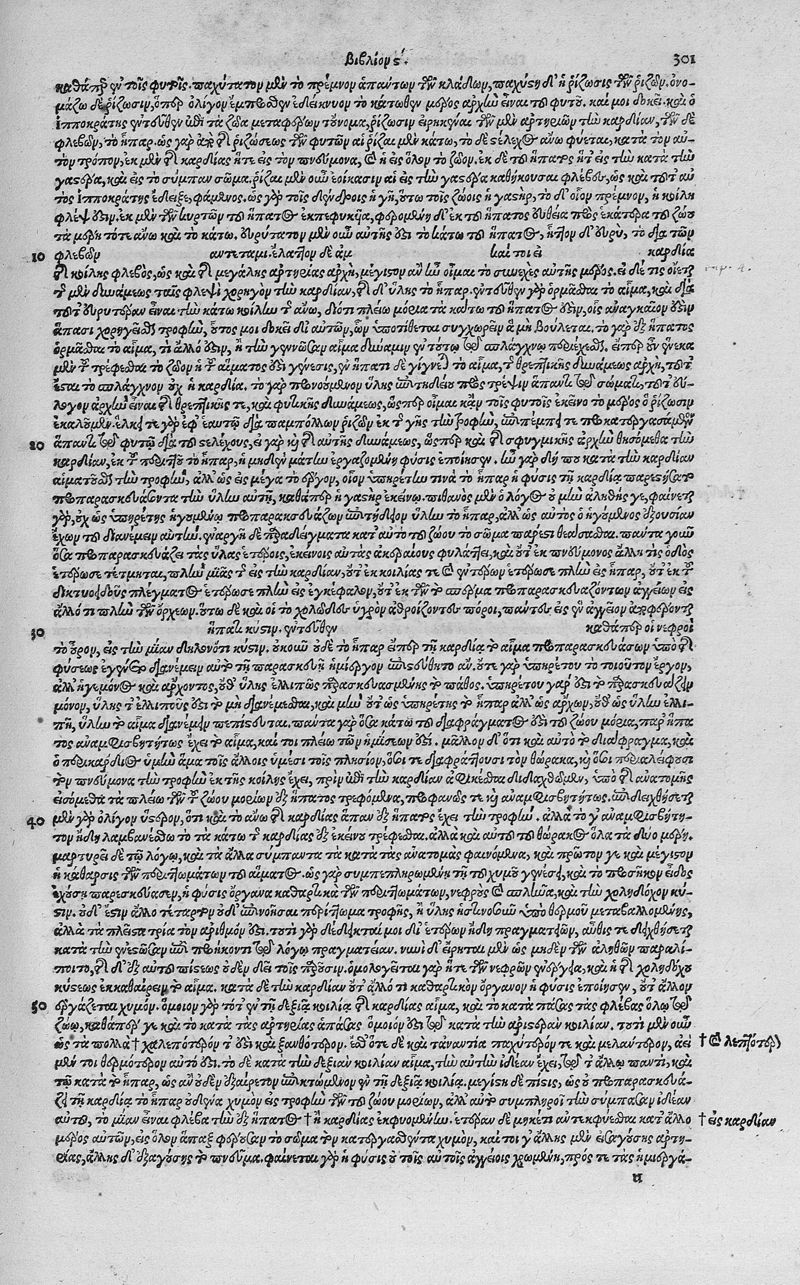 Βιβλίον ς΄. 301
καθάπερ ἐν τοῖς φυτοῖς. παχύτατον μὲν τὸ πρέμνον ἁπάντων τῶν κλάδων, παχύτη δ' ἡ ῥίζωσις τῶν ῥιζῶν. ὀνο-
μάζω δὲ ῥίζωσιν, ὅπερ ὀλίγον ἔμπροσθεν ἐδείκνυον τὸ κάτωθεν μέρος ἀρχὴν εἶναι τοῦ φυτοῦ. καί μοι δοκεῖ καὶ ὁ
Ἱπποκράτης ἐντεῦθεν ἐπὶ τὰ ζῶα μεταφέρων τοὔνομα, ῥίζωσιν εἰρηκέναι τῶν μὲν ἀρτηριῶν τὴν καρδίαν, τῶν δὲ
φλεβῶν, τὸ ἧπαρ. ὡς γὰρ ἀπὸ τῆς ῥιζώσεως τῶν φυτῶν αἱ ῥίζαι μὲν κάτω, τὸ δὲ στέλεχος ἄνω φύεται, κατὰ τὸν αὐ-
τὸν τρόπον, ἐκ μὲν τῆς καρδίας ἥ τε εἰς τὸν πνεύμονα, καὶ ἡ εἰς ὅλον τὸ ζῶον. ἐκ δὲ τοῦ ἥπατος ἥ τ' εἰς τὴν κατὰ τὴν
γαστέρα, καὶ εἰς τὸ σύμπαν σῶμα. ῥίζαι μὲν οὖν ἐοίκασιν αἱ εἰς τὴν γαστέρα καθήκουσαι φλέβες, ὡς καὶ τοῦτ' αὐ
τὸς Ἱπποκράτης ἔδειξε, φάμενος, ὡς γὰρ τοῖς δένδροις ἡ γῆ, οὕτω τοῖς ζώοις ἡ γαστήρ, τὸ δ' οἷον πρέμνον, ἡ κοίλη
φλέψ ἐστιν. ἐκ μὲν τῶν κυρτῶν τοῦ ἥπατος ἐκπεφυκυῖα, φερομένη δ' ἐκ τοῦ ἥπατος εὐθεῖα πρὸς ἑκάτερα τοῦ ζώου
τὰ μέρη τό τε ἄνω καὶ τὸ κάτω. εὐρύτατον μὲν οὖν αὐτῆς ἐστι τὸ κάτω τοῦ ἥπατος, ἧττον δ' εὐρὺ, τὸ διὰ τῶν
10 φλεβῶν ἀντεταμι. ἔλαττον δὲ ἀμ καὶ τοι εἰ καρδία
τῆς κοίλης φλεβὸς, ὡς καὶ τῆς μεγάλης ἀρτηρίας ἀρχὴ, μέγιστον ἂν ἦν οἶμαι τὸ συνεχὲς αὐτῆς μέρος. εἰ δέ τις οἴεται
τῆς μὲν δυνάμεως ταῖς φλεψὶ χορηγὸν τὴν καρδίαν, τῆς δ' ὕλης τὸ ἧπαρ. ἐντεῦθεν γὰρ ὁρμᾶσθαι τὸ αἷμα, καὶ διὰ
τοῦτ' εὐρυτέραν εἶναι τὴν κάτω κοίλην τῆς ἄνω, διότι πλείω μόρια τὰ κάτω τοῦ ἥπατός ἐστιν, οἷς ἀναγκαῖόν ἐστιν
ἅπασι χορηγεῖσθαι τροφὴν, οὗτός μοι δοκεῖ δι' αὐτῶν, ὧν ὑποτίθεται συγχωρεῖν ἃ μὴ βούλεται. τὸ γὰρ ἐξ ἥπατος
ὁρμᾶσθαι τὸ αἷμα, τί ἄλλο ἐστὶν, ἢ τὴν γεννῶσαν αἷμα δύναμιν ἐν τούτῳ τῷ σπλάγχνῳ περιέχεσθαι. εἴπερ ὧν ἕνεκα
μὲν τοῦ τρέφεσθαι τὸ ζῶον ἡ τοῦ αἵματός ἐστι γένεσις, ἐν ἥπατι δὲ γίγνεται τὸ αἷμα, τῆς θρεπτικῆς δυνάμεως ἀρχὴ, τοῦτ'
ἔσται τὸ σπλάγχνον οὐχ ἡ καρδία. τὸ γὰρ πονούμενον ὕλης ἐπιτήδειον πρὸς θρέψιν ἅπαντι τῷ σώματι, τοῦτ' εὔ-
λογον ἀρχὴν εἶναι τῆς θρεπτικῆς τε, καὶ φυτικῆς δυνάμεως, ὥσπερ οἶμαι κἀν τοῖς φυτοῖς ἐκεῖνο τὸ μέρος ὃ ῥίζωσιν
ἐκαλοῦμεν. ἕλκει τε γὰρ ἐφ' ἑαυτὸ διὰ παμπόλλων ῥιζῶν ἐκ τῆς γῆς τὴν τροφὴν, ἐπιπέμπει τε προκατεργασάμενον
20 ἅπαντι τῷ φυτῷ διὰ τοῦ στελέχους, εἰ γὰρ καὶ τῆς αὐτῆς δυνάμεως, ὥσπερ καὶ τῆς σφυγμικῆς ἀρχὴν θησόμεθα τὴν
καρδίαν, ἐκ τοῦ περιττοῦ τὸ ἧπαρ, ἡ μηδὲν μάτην ἐργαζομένη φύσις ἐποίησεν. ἦν γὰρ δή που κατὰ τὴν καρδίαν
αἱματοῦσθαι τὴν τροφὴν, ἀλλ' ὡς εἰς μέγα τὸ ἔργον, οἷον ὑπηρέτην τινὰ τὸ ἧπαρ ἡ φύσις τῇ καρδίᾳ παρεσκεύασε
προπαρασκευάζοντα τὴν ὕλην αὐτῇ, καθάπερ ἡ γαστὴρ ἐκείνῳ. πιθανὸς μὲν ὁ λόγος οὐ μὴν ἀληθής γε, φαίνεται
γὰρ, οὐχ ὡς ὑπηρέτης ἡγουμένῳ προπαρασκευάζων ἐπιτήδειον ὕλην τὸ ἧπαρ, ἀλλ' ὡς αὐτὸς ὁ ἡγούμενος ἐξουσίαν
ἔχων τοῦ διανέμειν αὐτήν. ἐναργῆ δὲ παραδείγματα κατ' αὐτὸ τοῦ ζώου τὸ σῶμα πάρεστι θεάσασθαι. πάντα γοῦν
ὅσα προπαρασκευάζει τὰς ὕλας ἑτέροις, ἐκείνοις αὐτὰς ἀκεραίους φυλάττει, καὶ οὔτ' ἐκ πνεύμονος ἄλλη τις ὁδὸς
ἑτέρωσε τέτμηται, πλὴν μιᾶς τῆς εἰς τὴν καρδίαν, οὔτ' ἐκ κοιλίας τε καὶ ἐντέρων ἑτέρωσε πλὴν εἰς ἧπαρ, οὔτ' ἐκ τοῦ
δικτυοειδοῦς πλέγματος ἑτέρωσε πλὴν εἰς ἐγκέφαλον, οὔτ' ἐκ τῶν τὸ σπέρμα προπαρασκευαζόντων ἀγγείων εἰς
ἄλλό τι πλὴν τῶν ὄρχεων. οὕτω δὲ καὶ οἱ τὸ χολῶδες ὑγρὸν ἀθροίζοντες πόροι, πάντες εἰς ἓν ἀγγεῖον ἀποφέρονται
30 ἥπατι κύστιν. ἐντεῦθεν καθάπερ οἱ νεφροὶ
τὸ οὖρον, εἰς τὴν μίαν δηλονότι κύστιν. οὐκοῦν οὐδὲ τὸ ἧπαρ εἴπερ τῇ καρδίᾳ τὸ αἷμα προπαρασκευάζων ὑπὸ τῆς
φύσεως ἐγεγόνει διανέμειν αὐτὸ τῇ παρασκευῇ ἡμίεργον ἐπεύθετο ἄν. οὔτε γὰρ ὑπηρέτου τὸ τοιοῦτον ἔργον,
ἀλλ' ἡγεμόνος καὶ ἄρχοντος, οὔθ' ὕλης ἐλλιπῶς παρασκευασμένης τὸ πάθος. ὑπηρέτου γάρ ἐστι τὸ παρασκευάζειν
μόνον, ὕλης τ' ἐλλιποῦς ἐστι τὸ μὴ διανέμεσθαι, καὶ μὴν οὔθ' ὡς ὑπηρέτης τὸ ἧπαρ ἀλλ' ὡς ἄρχων, οὔθ' ὡς ὕλην ἐλλι-
πῆ, ὕλην τὸ αἷμα διανέμειν πεπίστευται. πάντα γὰρ ὅσα κάτω τοῦ διαφράγματός ἐστι τοῦ ζώου μόρια, παρ' ἥπα
τος ἀναμφισβητήτως ἔχει τὸ αἷμα, καί τοι πλείω τῶν ἡμίσεών ἐστι. μᾶλλον δ' ὅτι καὶ αὐτὸ τὸ διάφραγμα, καὶ
ὁ περικάρδιος ὑμὴν ἅμα τοῖς ἄλλοις ὑμέσι τοῖς πλησίον, ὅσοι τε διαφράττουσι τὸν θώρακα, καὶ ὅσοι περιαλείφουσι
τὸν πνεύμονα τὴν τροφὴν ἐκ τῆς κοίλης ἔχει, πρὶν ἐπὶ τὴν καρδίαν ἀφικέσθαι διδαχθῶμεν, ὑπὸ τῆς ἀνατομῆς
εἰσόμεθα τὰ πλείω τῶν τοῦ ζώου μορίων ἐξ ἥπατος τρεφόμενα, προφανῶς τε καὶ ἀναμφισβητήτως. ἐπιδειχθήσεται
40 μὲν γὰρ ὀλίγον ὕστερον, ὅτι καὶ τὸ ἄνω τῆς καρδίας ἅπαν ἐξ ἥπατος ἔχει τὴν τροφήν. ἀλλὰ τό γ' ἀναμφισβήτη-
τον ἤδη λαμβανέσθω τὸ τὰ κάτω τῆς καρδίας ἐξ ἐκείνου τρέφεσθαι. ἀλλὰ καὶ αὐτοῦ τοῦ θώρακος ὅλα τὰ δύο μέρη.
μαρτυρεῖ δὲ τῷ λόγῳ, καὶ τὰ ἄλλα σύμπαντα τὰ κατὰ τὰς ἀνατομὰς φαινόμενα, καὶ πρῶτόν γε καὶ μέγιστον
ἡ κάθαρσις τῶν περιττωμάτων τοῦ αἵματος. ὡς γὰρ συμπεπληρωμένῃ τῇ τοῦ χυμοῦ γενέσει, καὶ τὸ προσῆκον εἶδος
ἐχούσῃ παρεσκεύασεν, ἡ φύσις ὄργανα καθαρτικὰ τῶν περιττωμάτων, νεφροὺς καὶ σπλῆνα, καὶ τὴν χοληδόχον κύ-
στιν. οὐδ' ἔστιν ἄλλο τέταρτον οὐδ' ἐπινοῆσαι περίττωμα τροφῆς, ἢ ὕλης ἡστινοσοῦν ὑπὸ θερμοῦ μεταβαλλομένης,
ἀλλὰ τὰ πλεῖστα τρία τὸν ἀριθμόν ἐστι. τοῦτο γὰρ δέδεικταί μοι δι' ἑτέρων ἤδη πραγματειῶν, αὖθις τε δειχθήσεται
κατὰ τὴν ἐνεστῶσαν ἐπὶ προήκοντι τῷ λόγῳ πραγματείαν. νυνὶ δ' εἴρηται μὲν ὡς μηδὲν τῶν ἀληθῶν παραλί-
ποιτο, τῆς δ' ἐξ αὐτοῦ πίστεως οὐδὲν δεῖ τοῖς παροῦσιν. ὁμολογεῖται γὰρ ἥ τε τῶν νεφρῶν ἐνέργεια, καὶ ἡ τῆς χοληδόχου
κύστεως ἐκκαθαίρειν τὸ αἷμα. κατὰ δὲ τὴν καρδίαν οὔτ' ἄλλό τι καθαρτικὸν ὄργανον ἡ φύσις ἐποίησεν, οὔτ' ἄλλον
50 ἐργάζεται χυμόν. ὅμοιον γὰρ τό τ' ἐν τῇ δεξιᾷ κοιλίᾳ τῆς καρδίας αἷμα, καὶ τὸ κατὰ πάσας τὰς φλέβας ὅλῳ τῷ
ζώῳ, καθάπερ γε καὶ τὸ κατὰ τὰς ἀρτηρίας ἁπάσας ὅμοιόν ἐστι τῷ κατὰ τὴν ἀριστερὰν κοιλίαν. τοῦτο μὲν οὖν
ὡς τὰ πολλὰ † χαλεπότερόν τ' ἐστὶ καὶ ξανθότερον. ἔσθ' ὅτε δὲ καὶ τἀναντία παχύτερόν τε καὶ μελάντερον, ἀεὶ † καὶ λεπτότερον
μέν τοι θερμότερον αὐτό ἐστι. τὸ δὲ κατὰ τὴν δεξιὰν κοιλίαν αἷμα, τὴν αὐτὴν ἰδέαν ἔχει, τῷ τ' ἄλλῳ παντὶ, καὶ
τῷ κατὰ τὸ ἧπαρ, ὡς ἂν οὐδὲν ἐξαίρετον ἐπικτώμενον ἐν τῇ δεξιᾷ κοιλίᾳ. μεγίστη δὲ πίστις, ὡς οὐ προπαρασκευά-
ζει τῇ καρδίᾳ τὸ ἧπαρ οὐδένα χυμὸν εἰς τροφὴν τῶν τοῦ ζώου μορίων, ἀλλ' αὐτὸ συμπληροῖ τὴν σύμπασαν ἰδέαν
αὐτοῦ, τὸ μίαν εἶναι φλέβα τὴν ἐξ ἥπατος † ἢ καρδίας ἐκφυομένην. ἑτέραν δὲ μηκέτι ἀντεκφύεσθαι κατ' ἄλλο † εἰς καρδίαν
μέρος αὐτῶν, εἰς ὅλον ἅπαξ φέρουσαν τὸ σῶμα τὸν κατεργασθέντα χυμὸν, καί τοι γ' ἄλλης μὲν εἰσαγούσης ἀρτη-
ρίας, ἄλλης δ' ἐξαγούσης τὸ πνεῦμα. φαίνεται γὰρ ἡ φύσις οὐ τοῖς αὐτοῖς ἀγγείοις χρωμένη, πρός τε τὰς ἡμιεργά-